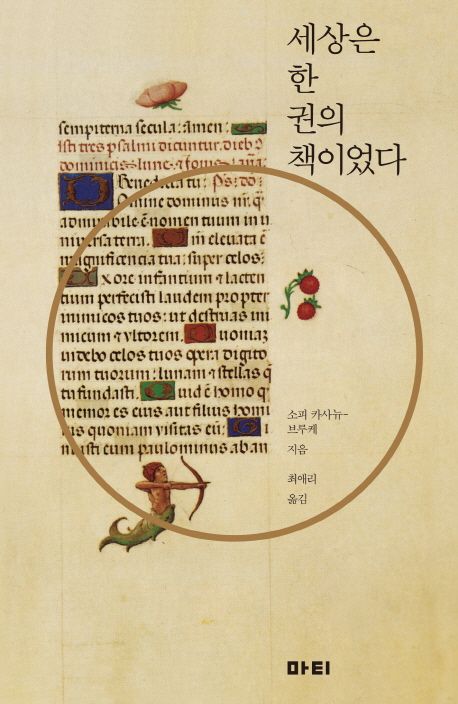 세상은
한
권의
책이었다
sempiterna secula: amen:
Isti tres psalmi dicuntur. dieb9
dominicis lune. &
Benedicta tu: Ps: do:
Domine dominus nr. q̄
admirabile ē nomen tuum in u
niuersa terra. Qm̄ eleuata ē
magnificencia tua: super celos:
Ex ore infantium & lacten
tium perfecisti laudem propter
inimicos tuos: ut destruas ini
micum & vltorem. Quoniaz
uidebo celos tuos opera digito
rum tuorum: lunam & stellas q̄
tu fundasti. Quid ē homo q̄
memor es eius aut filius homi
nis quoniam visitas eū: M i
nuisti eum paulominus ab an
소피 카사뉴-
브루케
지음
최애리
옮김
마티